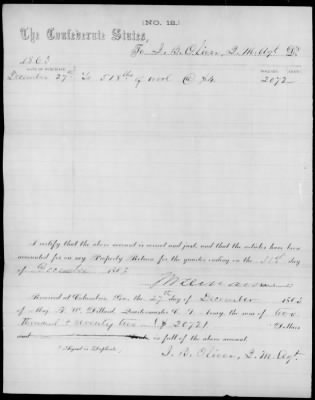 [NO. 12.]
The Confederate States,
To J. B. Oliver, Q. M. Agt Dr.
1863
DATE OF PURCHASE. DOLLARS CENTS
December 27th To 518 lbs of wool @ $4. 2072
I certify that the above account is correct and just; and that the articles have been
accounted for on my Property Return for the quarter ending on the 31st day
of December 1863
Received at Columbus Geo. the 27th day of December 1863
of Maj. F. W. Dillard Quartermaster C. S. Army, the sum of two
thousand & seventy two ($2072) Dollars
and cents, in full of the above account.
(Signed in Duplicate.) J. B. Oliver, Q. M. Agt.